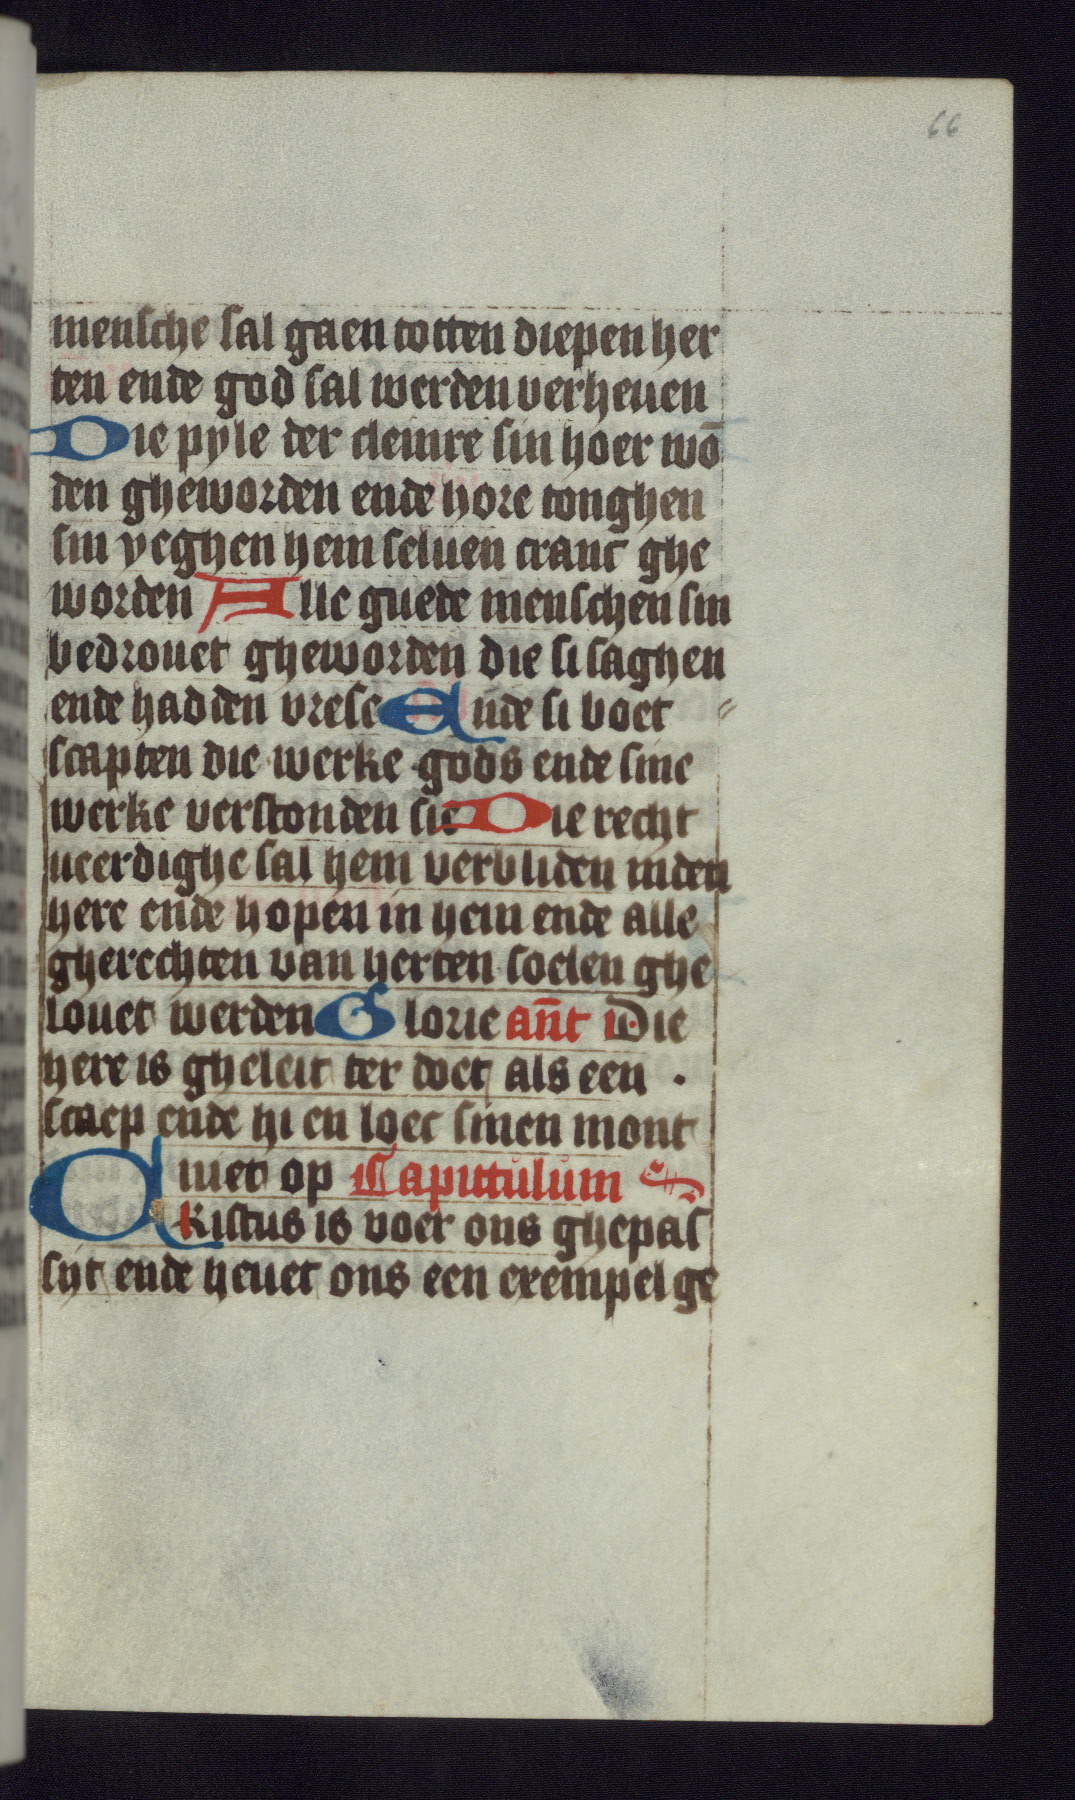 66
mensche sal gaen totten diepen her
ten ende god sal werden verheuen
Die pyle der cleinre sin hoer wō
den gheworden ende hore tonghen
sin yeghen hem seluen cranc ghe
worden Alle guede menschen sin
bedrouet gheworden die si saghen
ende hadden vrese Ende si boet
scapten die werke gods ende sine
werke verstonden sie Die recht
ueerdighe sal hem verbliden inden
here ende hopen in hem ende alle
gherechten van herten soelen ghe
louet werden Glorie an̄t Die
here is gheleit ter doet als een .
scaep ende hi en loec sinen mont
niet op Caputulum
Cristus is voer ons ghepas
sijt ende heuet ons een exempel ge